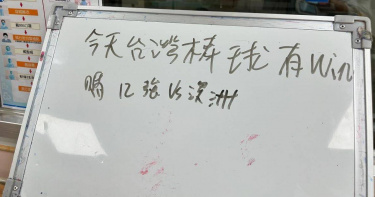 今天台灣棒球有Win
12強 VS 澳洲